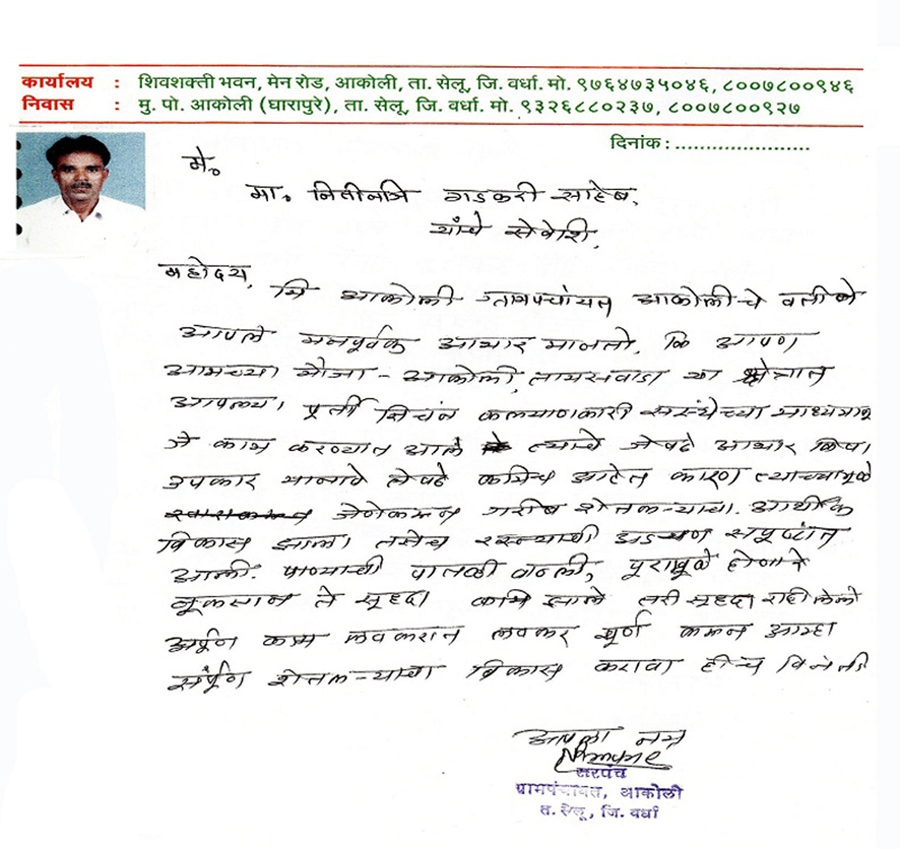 कार्यालय : शिवशक्ती भवन, मेन रोड, आकोली, ता. सेलू, जि. वर्धा. मो. ९७६४७३५०४६, ८००७८००९४६
निवास : मु. पो. आकोली (घारापुरे), ता. सेलू, जि. वर्धा. मो. ९३२६८८०२३७, ८००७८००९२७
दिनांक : ......................
मे.
मा. नितीनजि गडकरी साहेब,
यांचे सेवेशि,
महोदय,
मि आकोली ग्रामपंचायत आकोलीचे वतीने
आपले मनपूर्वक आभार मानतो, कि आपण
आमच्या मौजा - आकोली, तामसवाडा या क्षेत्रात
आपल्या पूर्ती सिचंन कल्याणकारी संस्थेच्या माध्यमातून
जे काम करण्यात आले त्याचे जेवढे आभार किंवा
उपकार मानावे तेवढे कमिच आहेत कारण त्याच्यामुळे
जेणेकरून गरीब शेतकऱ्याचा. आर्थीक
विकास झाला तसेच रस्त्याची अडचण संपूष्टात
आली. पाण्याची पातळी वाढली, पूरामूळे होणारे
नूकसान ते सूध्दा कमि झाले तरी सूध्दा राहीलेले
अर्पूण काम लवकरात लवकर पूर्ण करून आम्हा
संर्पूण शेतकऱ्याचा विकास करावा हीच विनंती
आपला नम्र
सरपंच
ग्रामपंचायत, आकोली
त. सेलू, जि. वर्धा